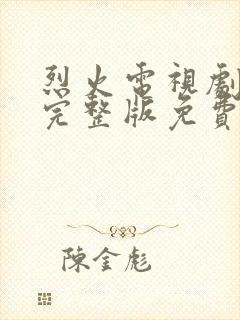 烈火電視劇
完整版免費
陳金彪